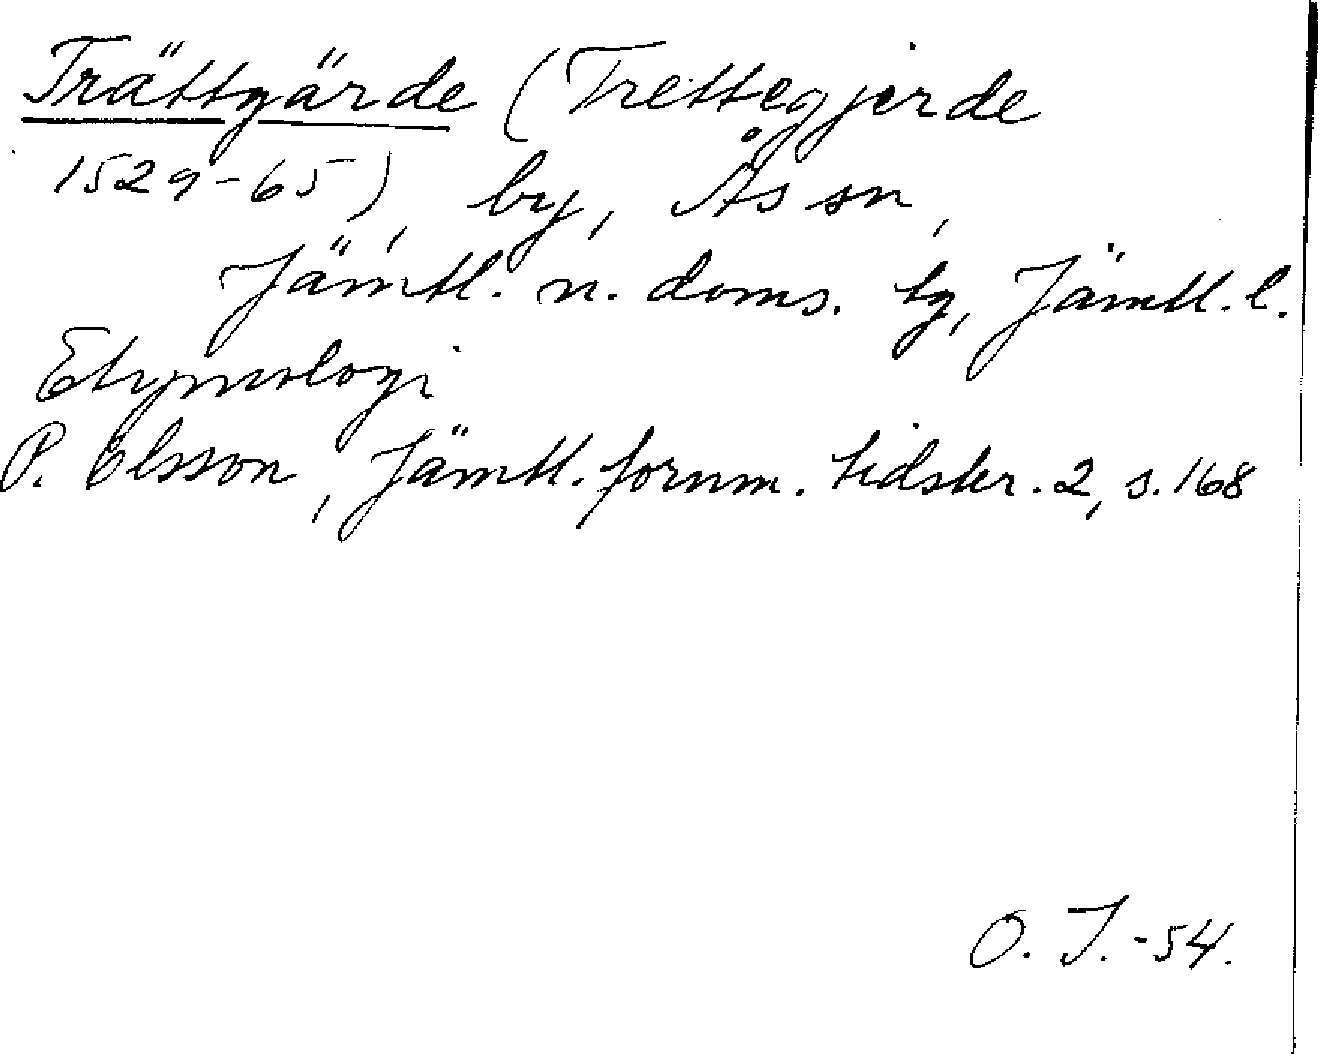 Trättgärde (Trettegjerde
1529-65), by, Ås sn,
Jämtl. n. doms. tg, Jämtl. l.
Etymologi
P. Olsson, Jämtl. fornm. tidskr. 2, s. 168
O. J. -54.